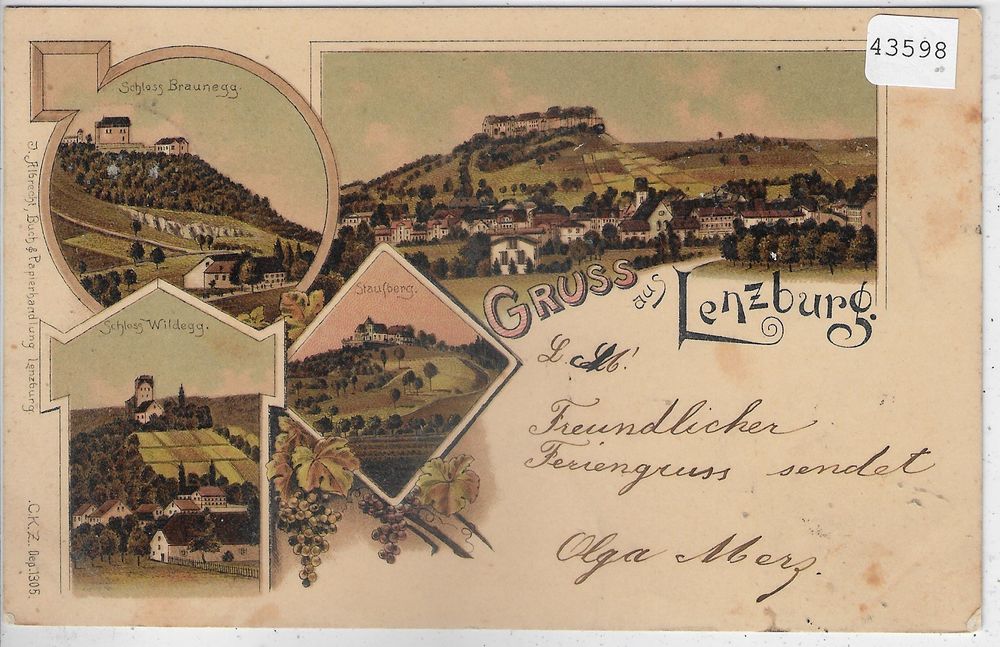 43598
Schloss Braunegg.
Schloss Wildegg.
Staufberg.
GRUSS aus Lenzburg.
L. M!
Freundlicher
Feriengruss sendet
Olga Merz.
J. Albrecht Buch & Papierhandlung Lenzburg
.C.K.Z. Dep.1305.